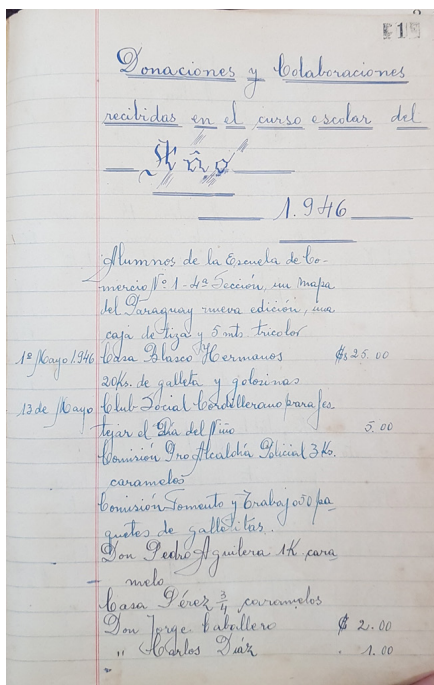 1
Donaciones y Colaboraciones
recibidas en el curso escolar del
Año
1.946
Alumnos de la Escuela de Co-
mercio Nº 1 - 4ª Sección, un mapa
del Paraguay nueva edición, una
caja de tiza y 5 mts. tricolor
1º Mayo 1.946 Casa Blasco Hermanos ₲s 25.00
20Ks. de galleta y golosinas
13 de Mayo Club Social Cordillerano para fes
tejar el Día del Niño 5.00
Comisión Pro Alcaldía Policial 3 Ks.
caramelos
Comisión Fomento y Trabajo 50 pa
quetes de galletitas.
Don Pedro Aguilera 1K. cara
melo
Casa Pérez 3/4 caramelos
Don Jorge Caballero ₲ 2.00
" Carlos Díaz . 1.00